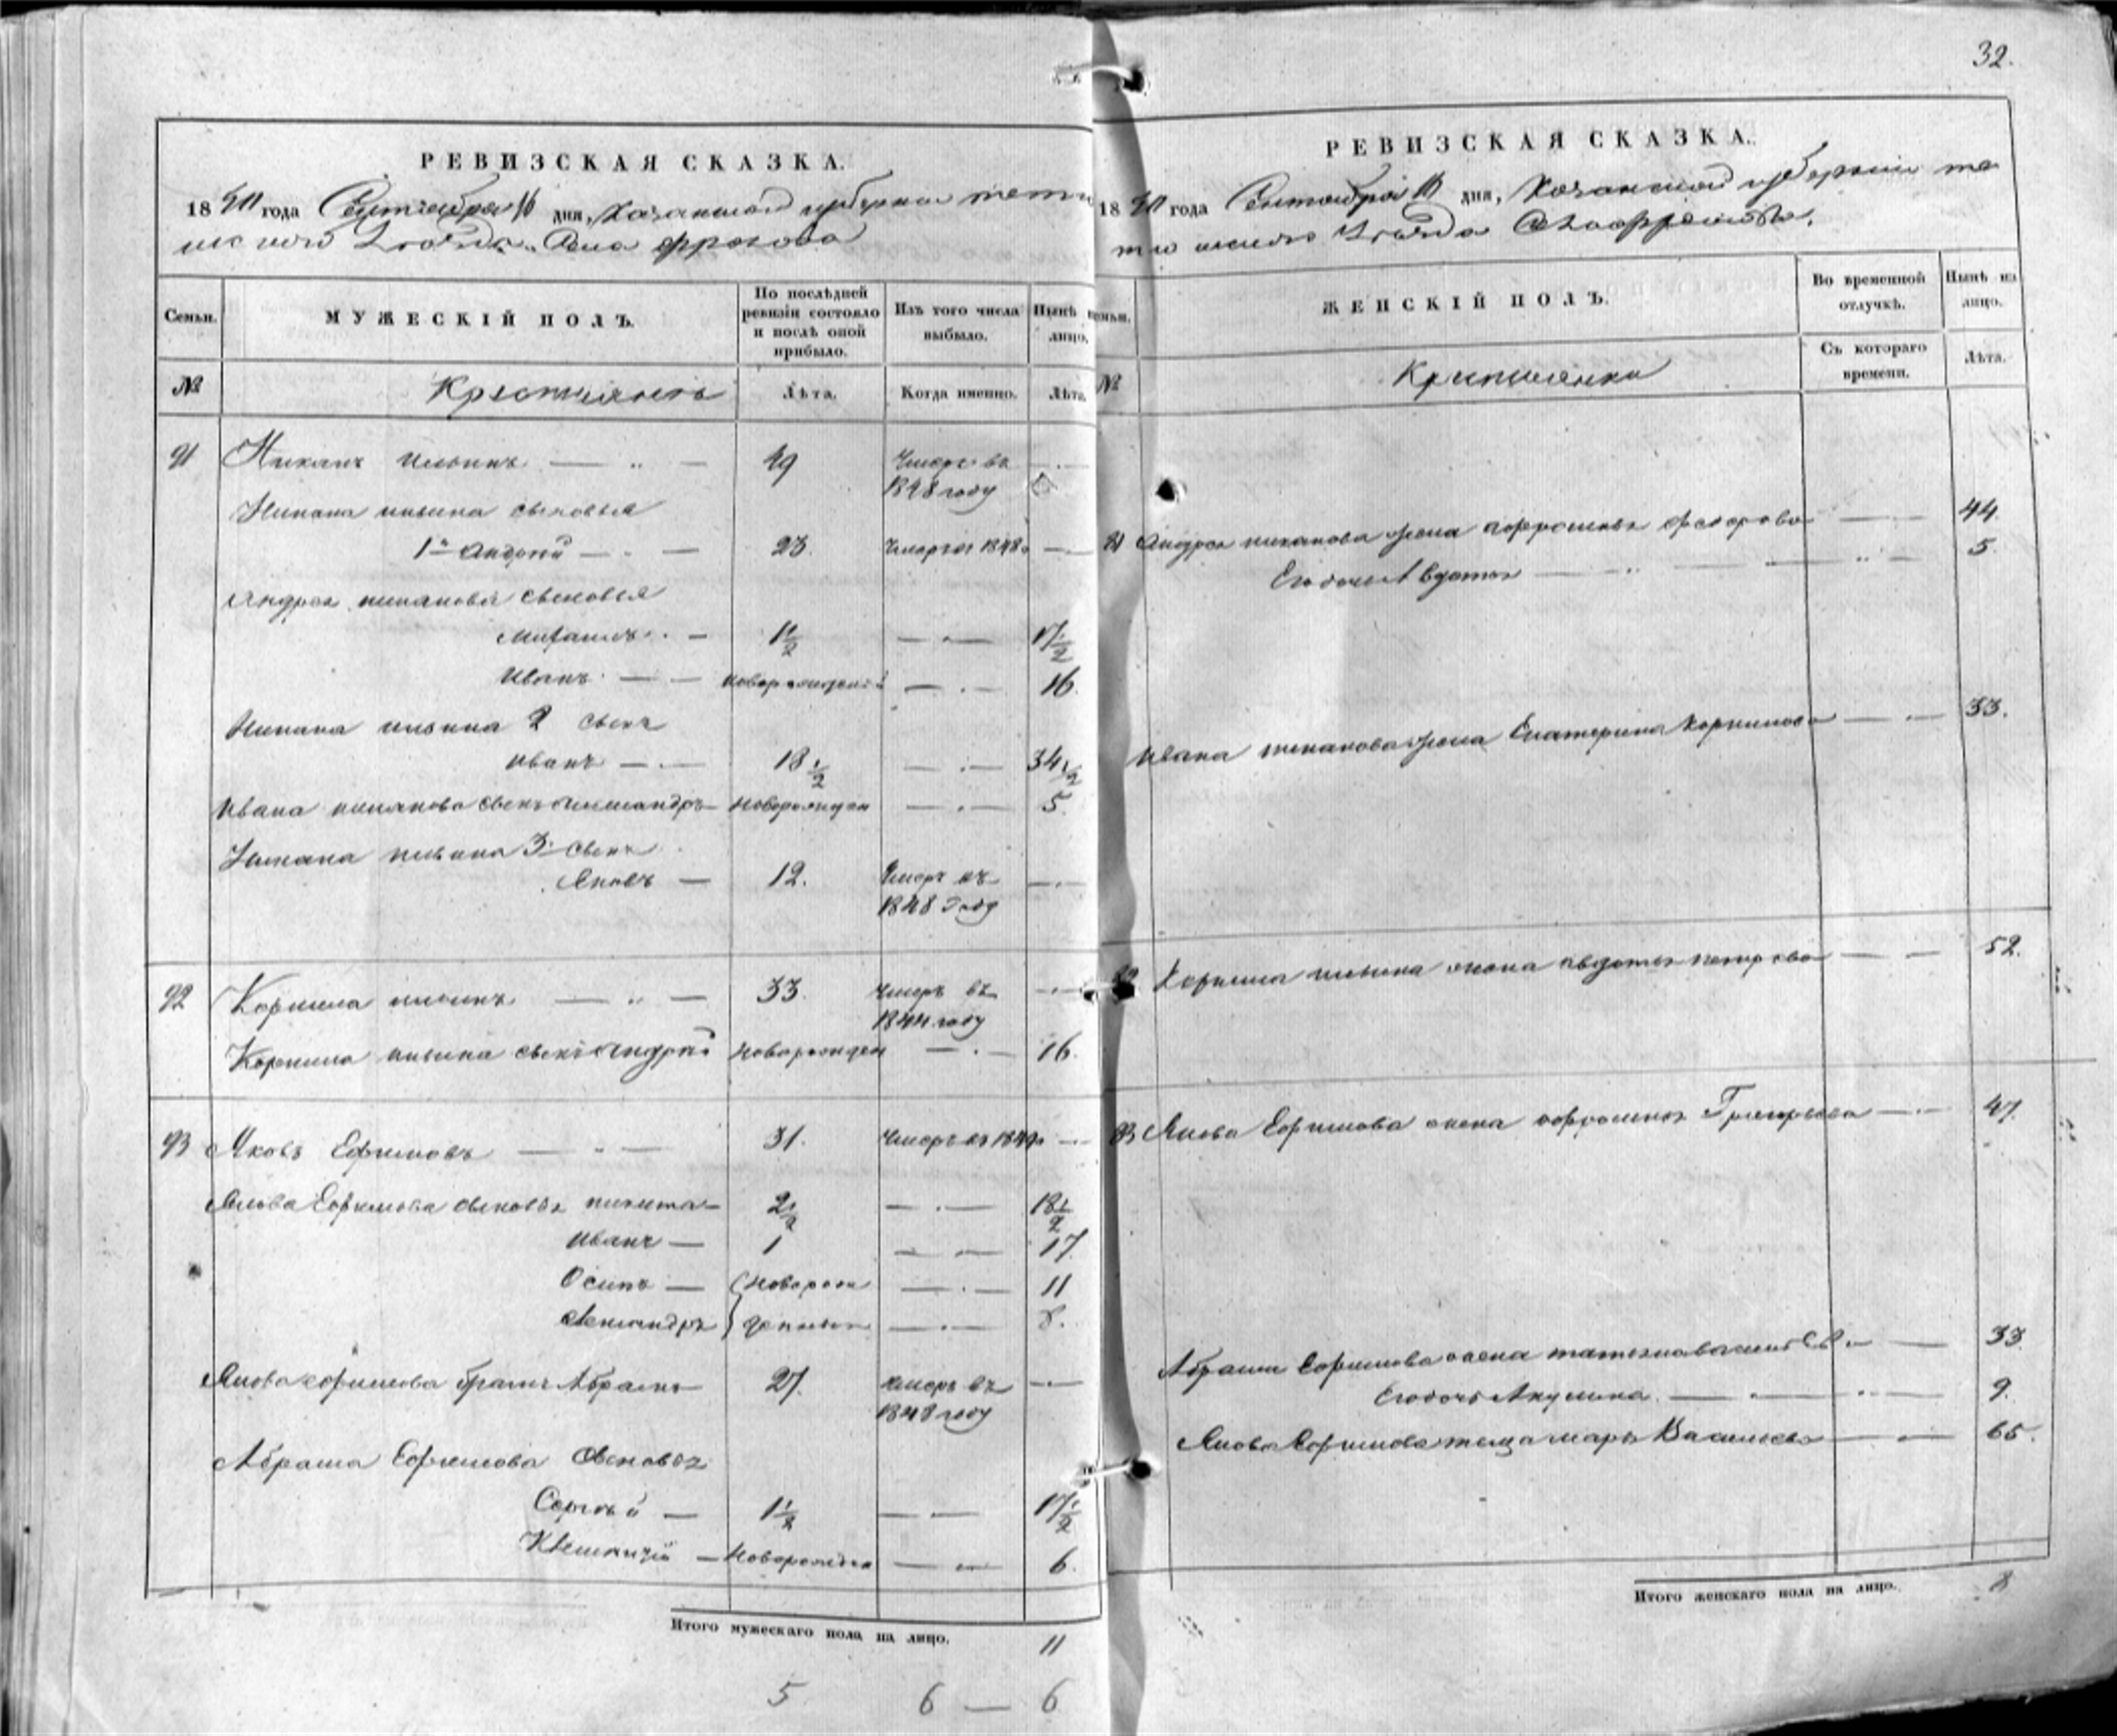 32.
РЕВИЗСКАЯ СКАЗКА.
1850 года Сентября 16 дня, Казанской губернии тетю
шскаго Уезда Села Фролова
Семьи.
МУЖЕСКІЙ ПОЛЪ.
По послѣдней ревизіи состояло и послѣ оной прибыло.
Изъ того числа выбыло.
Нынѣ на лицо.
№
Крестьянъ
Лѣта.
Когда именно.
Лѣта.
91 Никанъ Ильинъ 49 Умеръ въ
1848 году
ильина сыновья
1й Андрей 23. Умеръ въ 1848
Андрея сыновья
1½ 17½
Иванъ новорожденный 16.
ильина 2 сынъ
Иванъ 18½ 34½
Ивана сынъ новорожден 5.
ильина 3й сынъ
Яковъ 12. Умеръ въ
1848 году
92 Корнила ильинъ 33. Умеръ въ
1844 году
Корнила ильина сынъ Андрей новорожден 16.
93 Яковъ Ефимовъ 31. Умеръ въ
Якова Ефимова сыновья никита 2½ 18½
Иванъ 1 17
Осипъ новорож 11
Александръ денные 8.
Якова ефимова братъ Абрамъ 27. умеръ въ
1848 году
Абрама Ефимова сыновья
Сергѣй 1½ 17½
новорожден 6.
Итого мужескаго пола на лицо.
11
5 6 — 6
РЕВИЗСКАЯ СКАЗКА.
1850 года Сентября 16 дня, Казанской губернии те
тюшскаго Уезда Села Фролова.
Семьи.
ЖЕНСКІЙ ПОЛЪ.
Во временной отлучкѣ.
Нынѣ на лицо.
№
Крестьянки
Съ котораго времени.
Лѣта.
91 Андрея жена федорова 44.
Его дочь Авдотья 5.
Ивана жена Екатерина Корнилова 33.
92 Корнила ильина жена авдотья петрова 52.
93 Якова Ефимова жена Григорьева 47.
Абрама Ефимова жена татьяна 33.
Его дочь Акулина 9.
Якова Ефимова теща марья Васильева 65.
Итого женскаго пола на лицо.
8